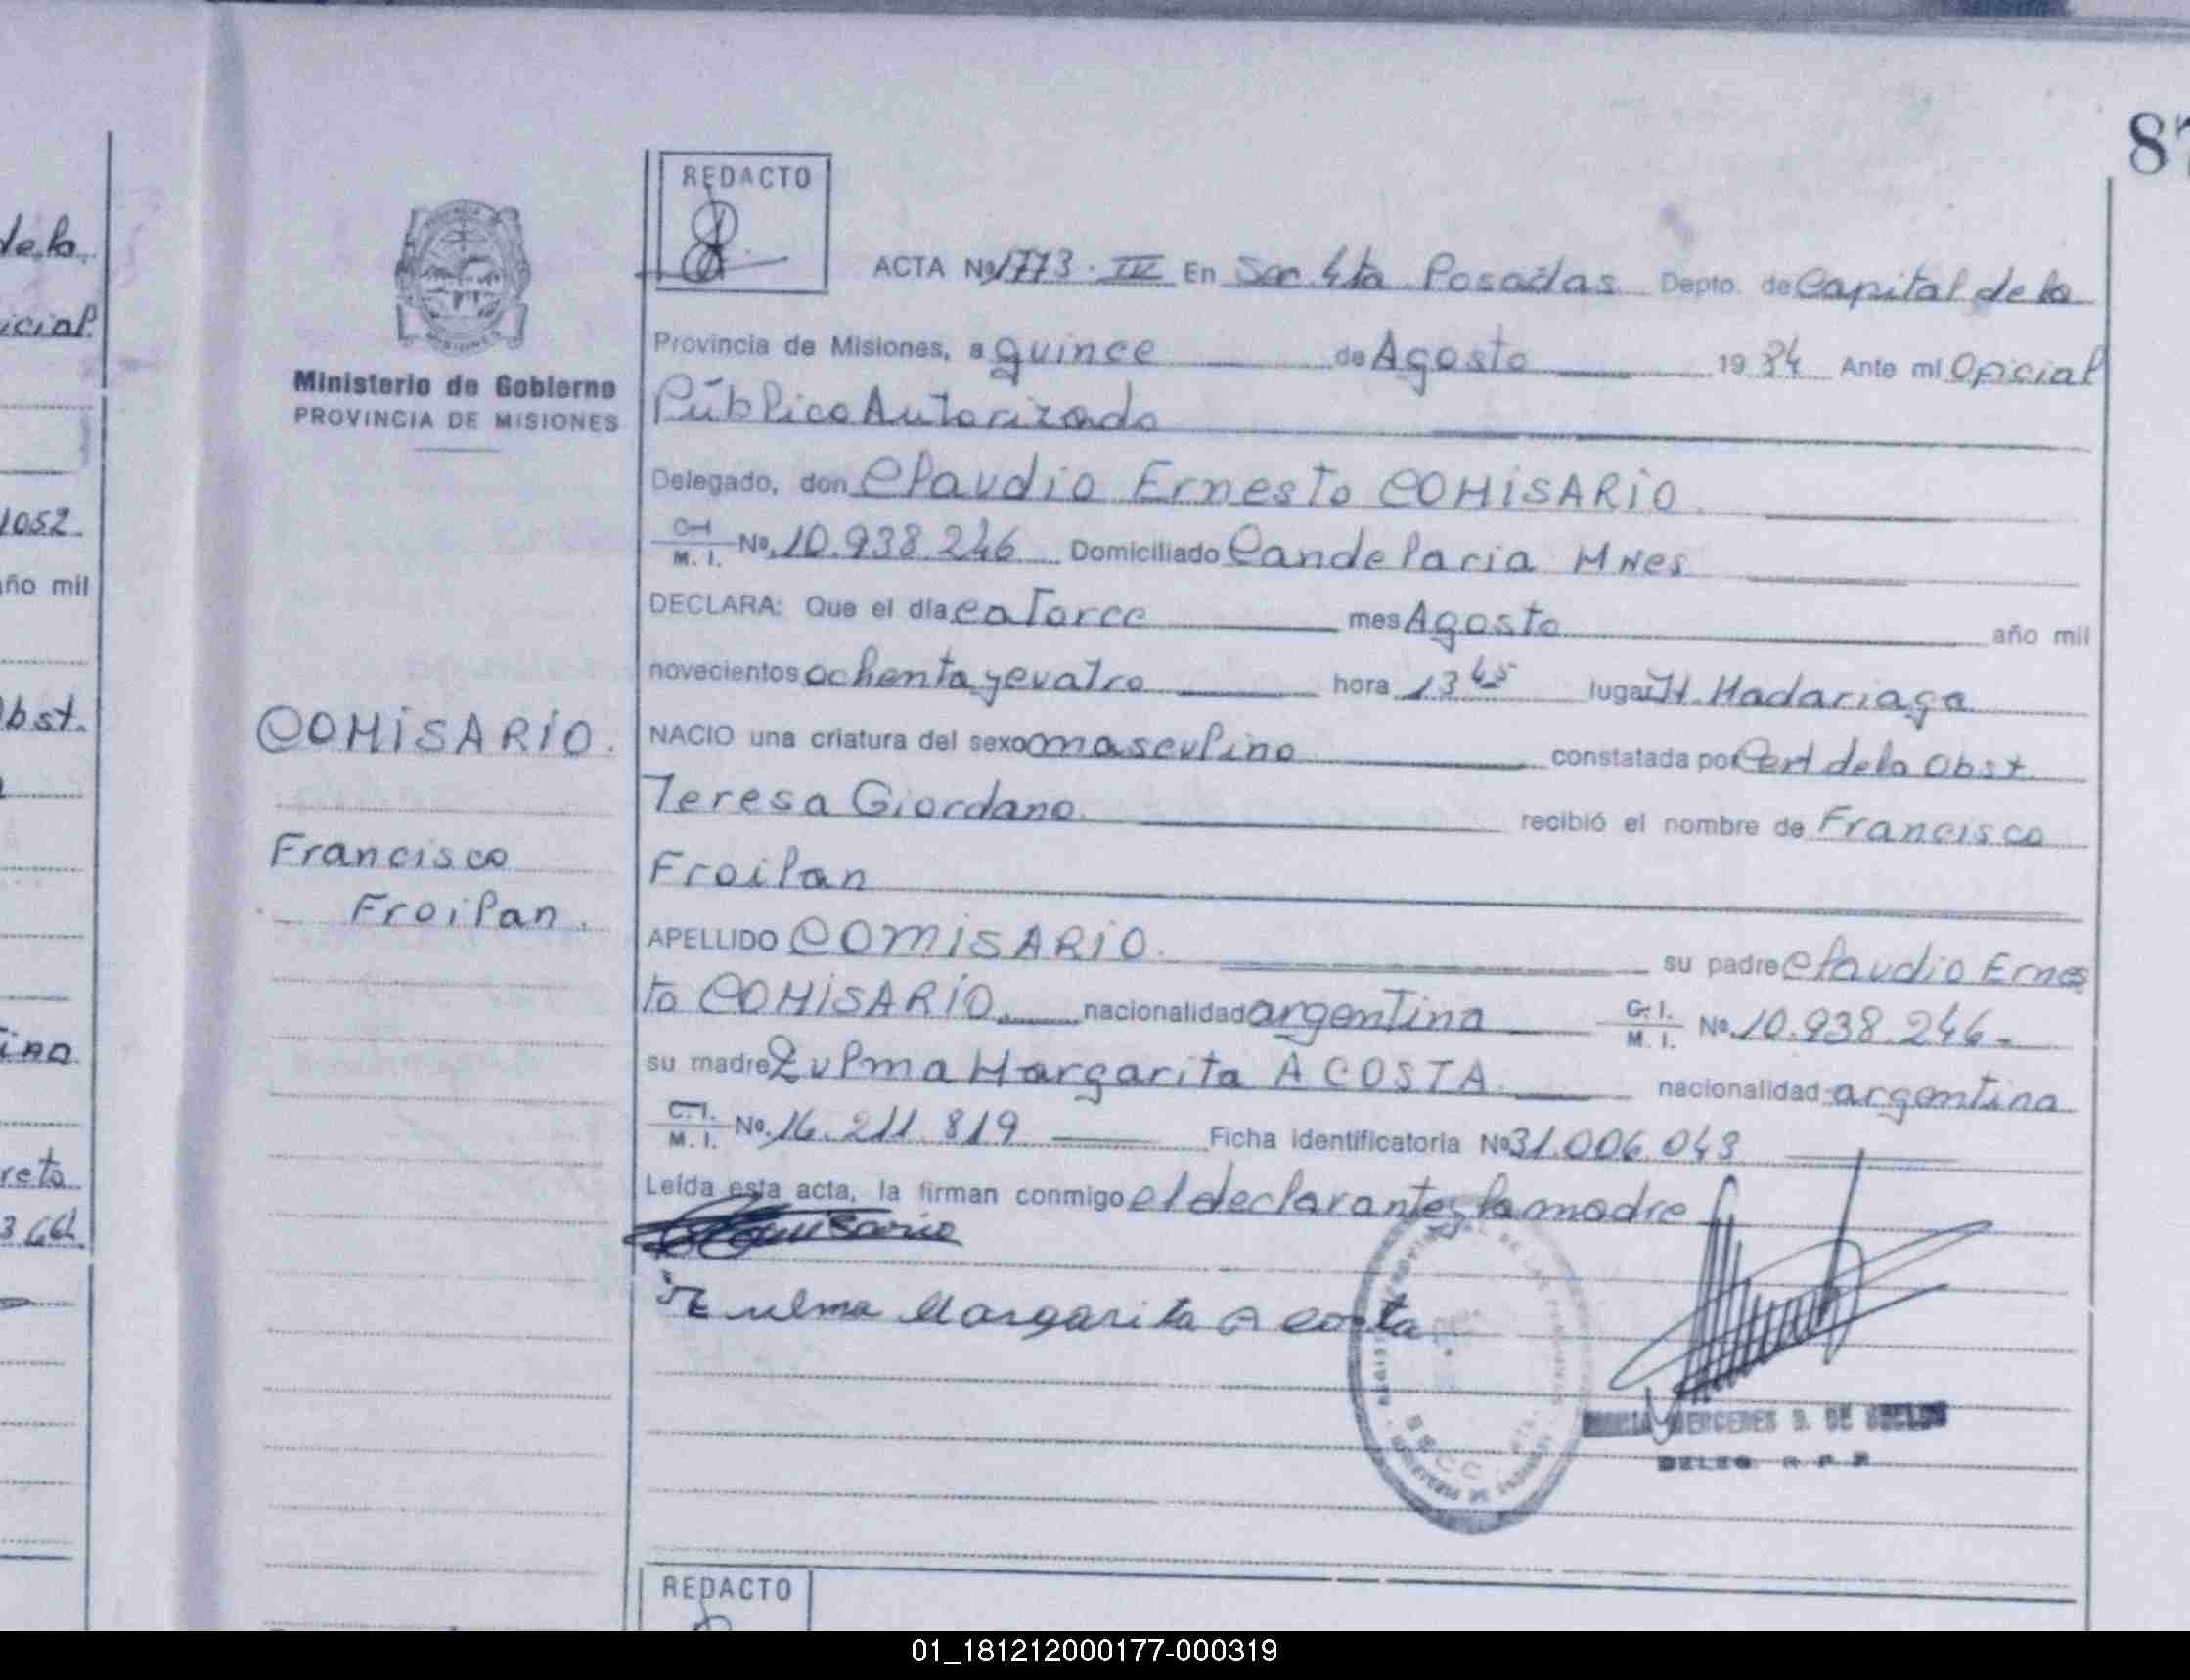 87
de la
icial.
1052.
año mil
Obst.
ina
reto
REDACTO
ACTA Nº 1773. III En Sec. 4ta Posadas Depto. de Capital de la
Provincia de Misiones, a quince de Agosto 1984 Ante mi Oficial
Público Autorizado
Ministerio de Gobierno
PROVINCIA DE MISIONES
Delegado, don Claudio Ernesto COMISARIO.
C.I. M. I. Nº. 10.938.246 Domiciliado Candelaria Mnes
DECLARA: Que el día catorce mes Agosto año mil
novecientos ochenta y cuatro hora 13 45 lugar H. Madariaga
COMISARIO.
NACIO una criatura del sexo masculino constatada por Cert de la Obst
Teresa Giordano. recibió el nombre de Francisco
Francisco
Froilan.
Froilan
APELLIDO COMISARIO. su padre Claudio Ernes
to COMISARIO. nacionalidad argentina C. I. M. I. Nº. 10.938.246-
su madre Zulma Margarita ACOSTA. nacionalidad argentina
C. I. M. I. Nº. 16.211.819 Ficha identificatoria Nº 31.006.043
Leída esta acta, la firman conmigo el declarante y la madre
Comisario
Zulma Margarita Acosta
MERCEDES DE
DELEG. R. P. P.
REDACTO
01_181212000177-000319